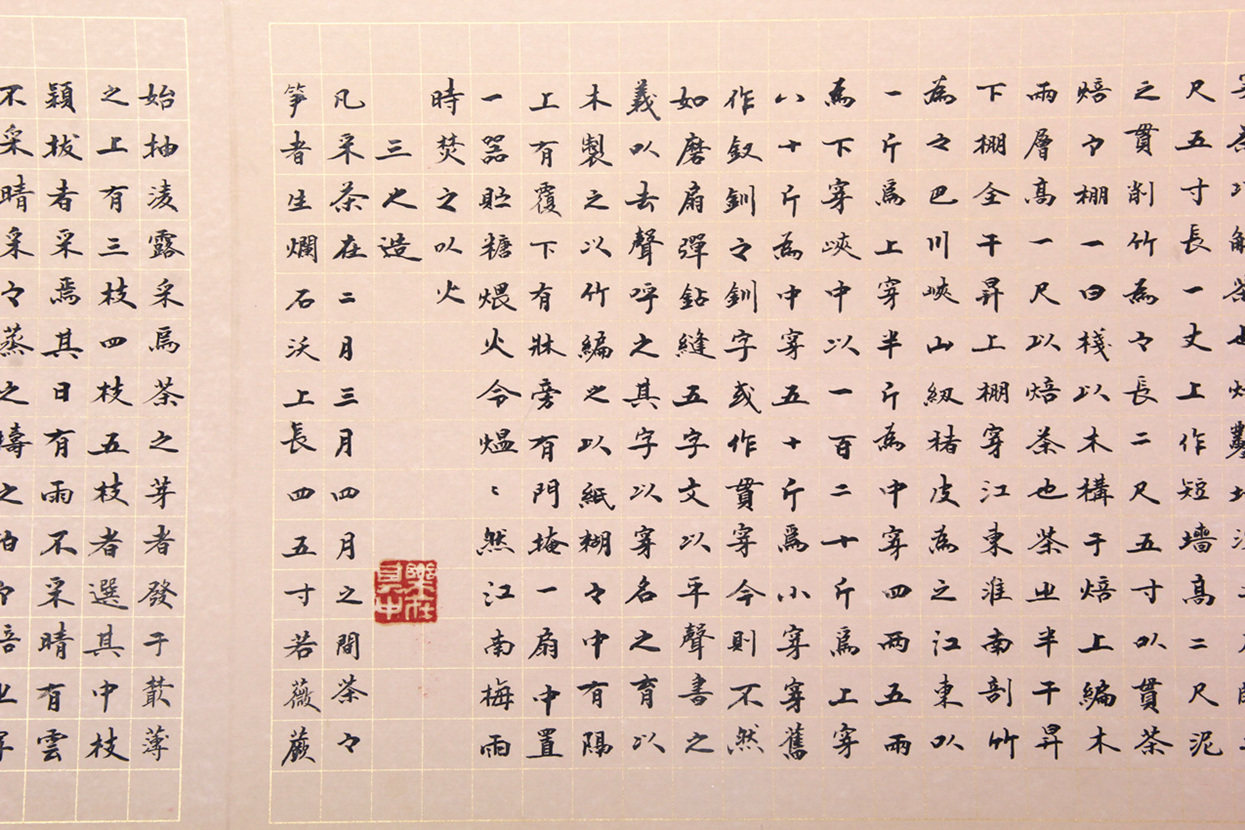 尺五寸長一丈上作短墻高二尺泥
之貫削竹為々長二尺五寸以貫茶
焙々棚一曰棧以木構于焙上編木
兩層高一尺以焙茶也茶㞢半干昇
下棚全干昇上棚穿江東淮南剖竹
為々巴川峽山紉楮皮為之江東以
一斤為上穿半斤為中穿四兩五兩
為下穿峽中以一百二十斤為上穿
八十斤為中穿五十斤為小穿穿舊
作釵釧之釧字或作貫穿今則不然
如磨扇彈鉆縫五字文以平聲書之
義以去聲呼之其字以穿名之育以
木製之以竹編之以紙糊々中有隔
上有覆下有牀旁有門掩一扇中置
一器貯糖煨火令熅〻然江南梅雨
時焚之以火
三之造
樂在其中
凡采茶在二月三月四月之間茶々
笋者生爛石沃上長四五寸若薇蕨
始抽淩露采焉茶之芽者發于叢薄
之上有三枝四枝五枝者選其中枝
穎拔者采焉其日有雨不采晴有雲
不采晴采々蒸之擣之拍々焙㞢穿